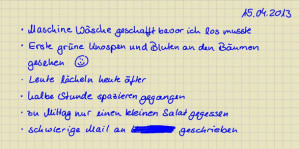 15.04.2013
• Maschine Wäsche geschafft bevor ich los musste
• Erste grüne Knospen und Blüten an den Bäumen
gesehen ☺
• Leute lächeln heute öfter
• halbe Stunde spazieren gegangen
• zu Mittag nur einen kleinen Salat gegessen
• schwierige Mail an geschrieben